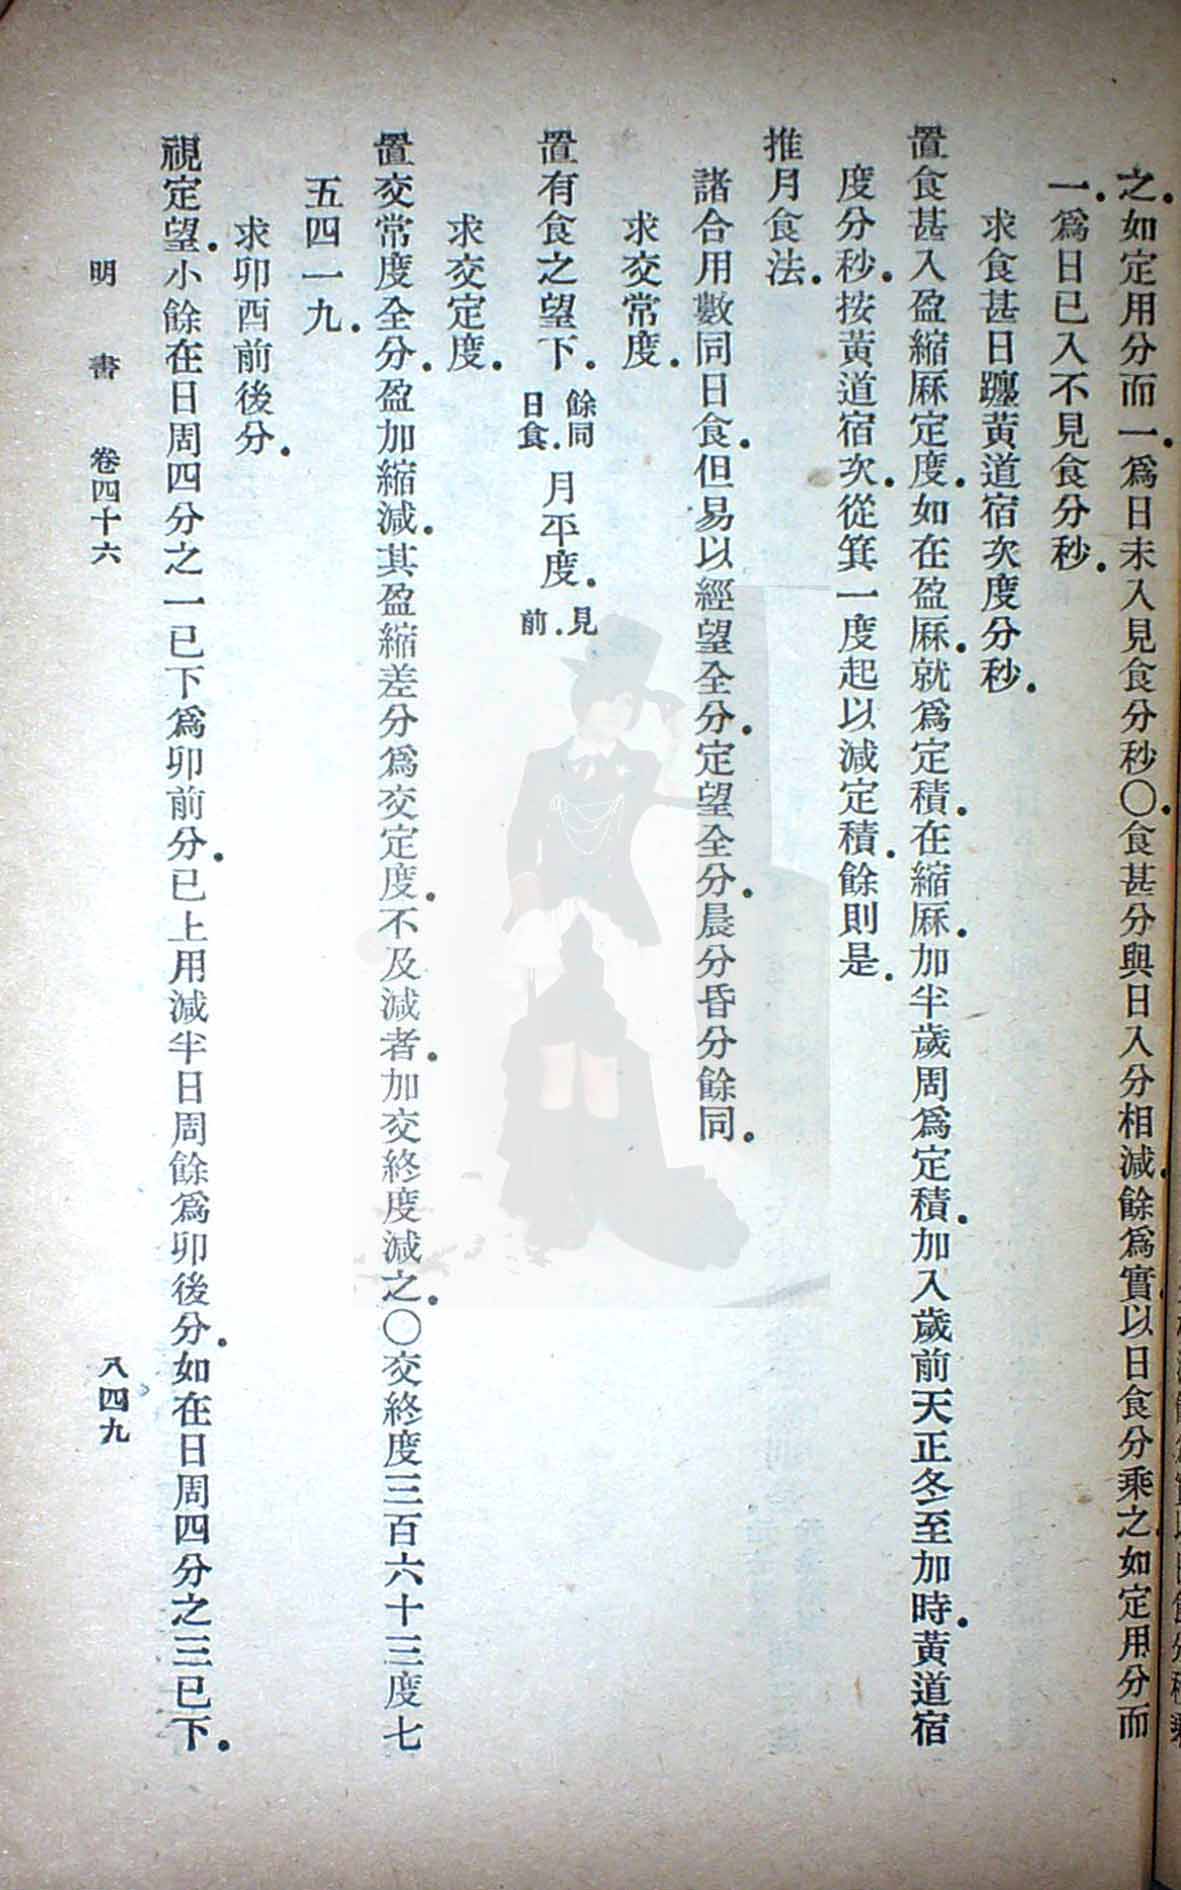 之。如定用分而一。爲日未入見食分秒〇。食甚分與日入分相減。餘爲實。以日食分乘之。如定用分而
一。爲日已入不見食分秒。
求食甚日躔黃道宿次度分秒。
置食甚入盈縮厤定度。如在盈厤。就爲定積。在縮厤。加半歲周爲定積。加入歲前天正冬至加時。黃道宿
度分秒。按黃道宿次。從箕一度起以減定積。餘則是。
推月食法。
諸合用數同日食。但易以經望全分。定望全分。晨分昏分餘同。
求交常度。
置有食之望下。餘同日食。月平度。見前。
求交定度。
置交常度全分。盈加縮減。其盈縮差分爲交定度。不及減者。加交終度減之。〇交終度三百六十三度七
五四一九。
求卯酉前後分。
視定望。小餘在日周四分之一已下爲卯前分。已上用減半日周餘爲卯後分。如在日周四分之三已下。
明書 卷四十六 八四九